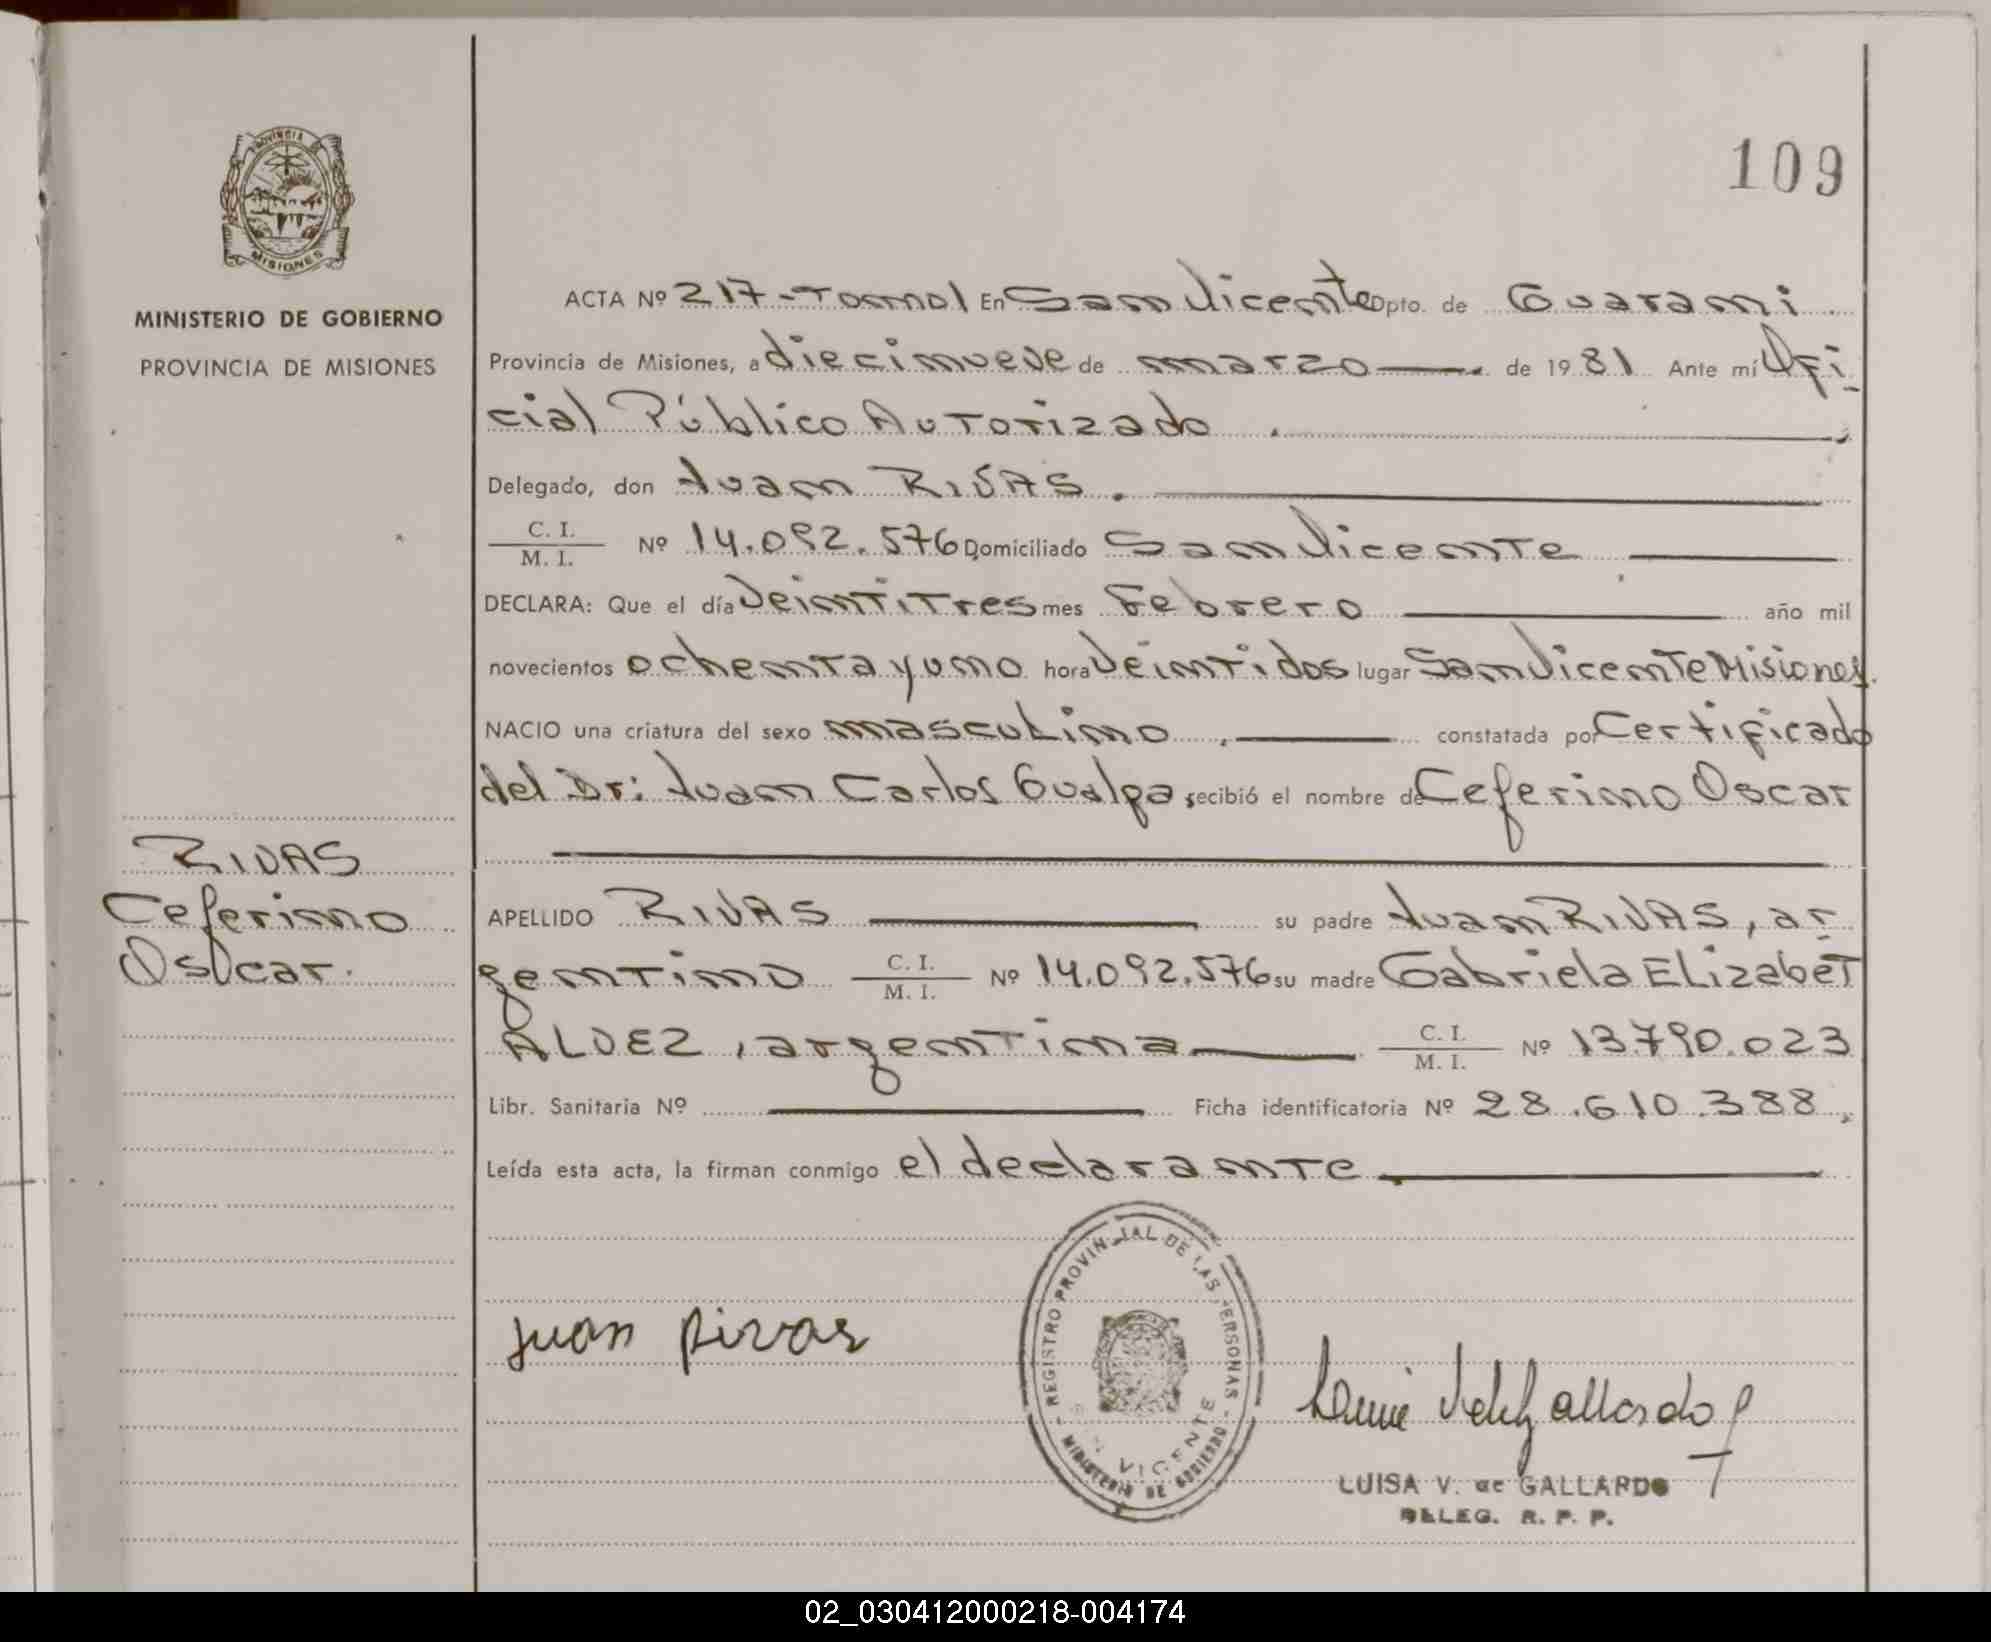 PROVINCIA DE
MISIONES
MINISTERIO DE GOBIERNO
PROVINCIA DE MISIONES
109
ACTA Nº 217-Tomo I En San Vicente Dpto. de Guarani
Provincia de Misiones, a diecinueve de marzo de 1981 Ante mí Ofi-
cial Público Autorizado.
Delegado, don Juan RIVAS.
C. I. / M. I. Nº 14.092.576 Domiciliado San Vicente
DECLARA: Que el día Veintitres mes Febrero año mil
novecientos ochenta y uno hora Veintidos lugar San Vicente Misiones.
NACIO una criatura del sexo masculino, constatada por Certificado
del Dr: Juan Carlos Gualpa, recibió el nombre de Ceferino Oscar
RIVAS
Ceferino
Oscar.
APELLIDO RIVAS su padre Juan RIVAS, ar-
gentino C. I. / M. I. Nº 14.092.576 su madre Gabriela ELizabeT
ALVEZ, argentina C. I. / M. I. Nº 13.790.023
Libr. Sanitaria Nº Ficha identificatoria Nº 28.610.388,
Leída esta acta, la firman conmigo el declarante
REGISTRO PROVINCIAL DE LAS PERSONAS - MINISTERIO DE GOBIERNO -
VICENTE
Juan Rivas
LUISA V. de GALLARDO
DELEG. R. P. P.
02_030412000218-004174